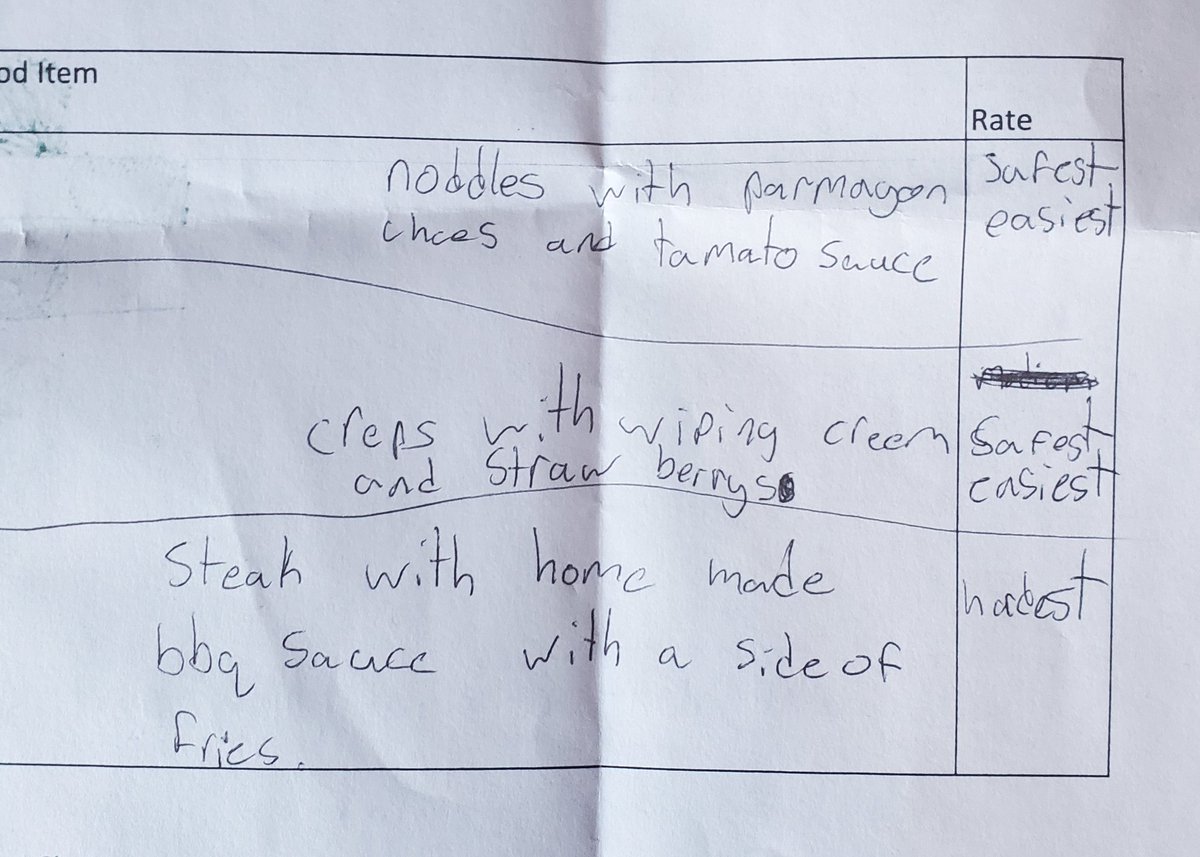 od Item
Rate
noddles with parmagon
chees and tamato sauce
safest
easiest
creps with wiping creem
and straw berrys
safest
easiest
Steak with home made
bbq sauce with a side of
fries.
hardest